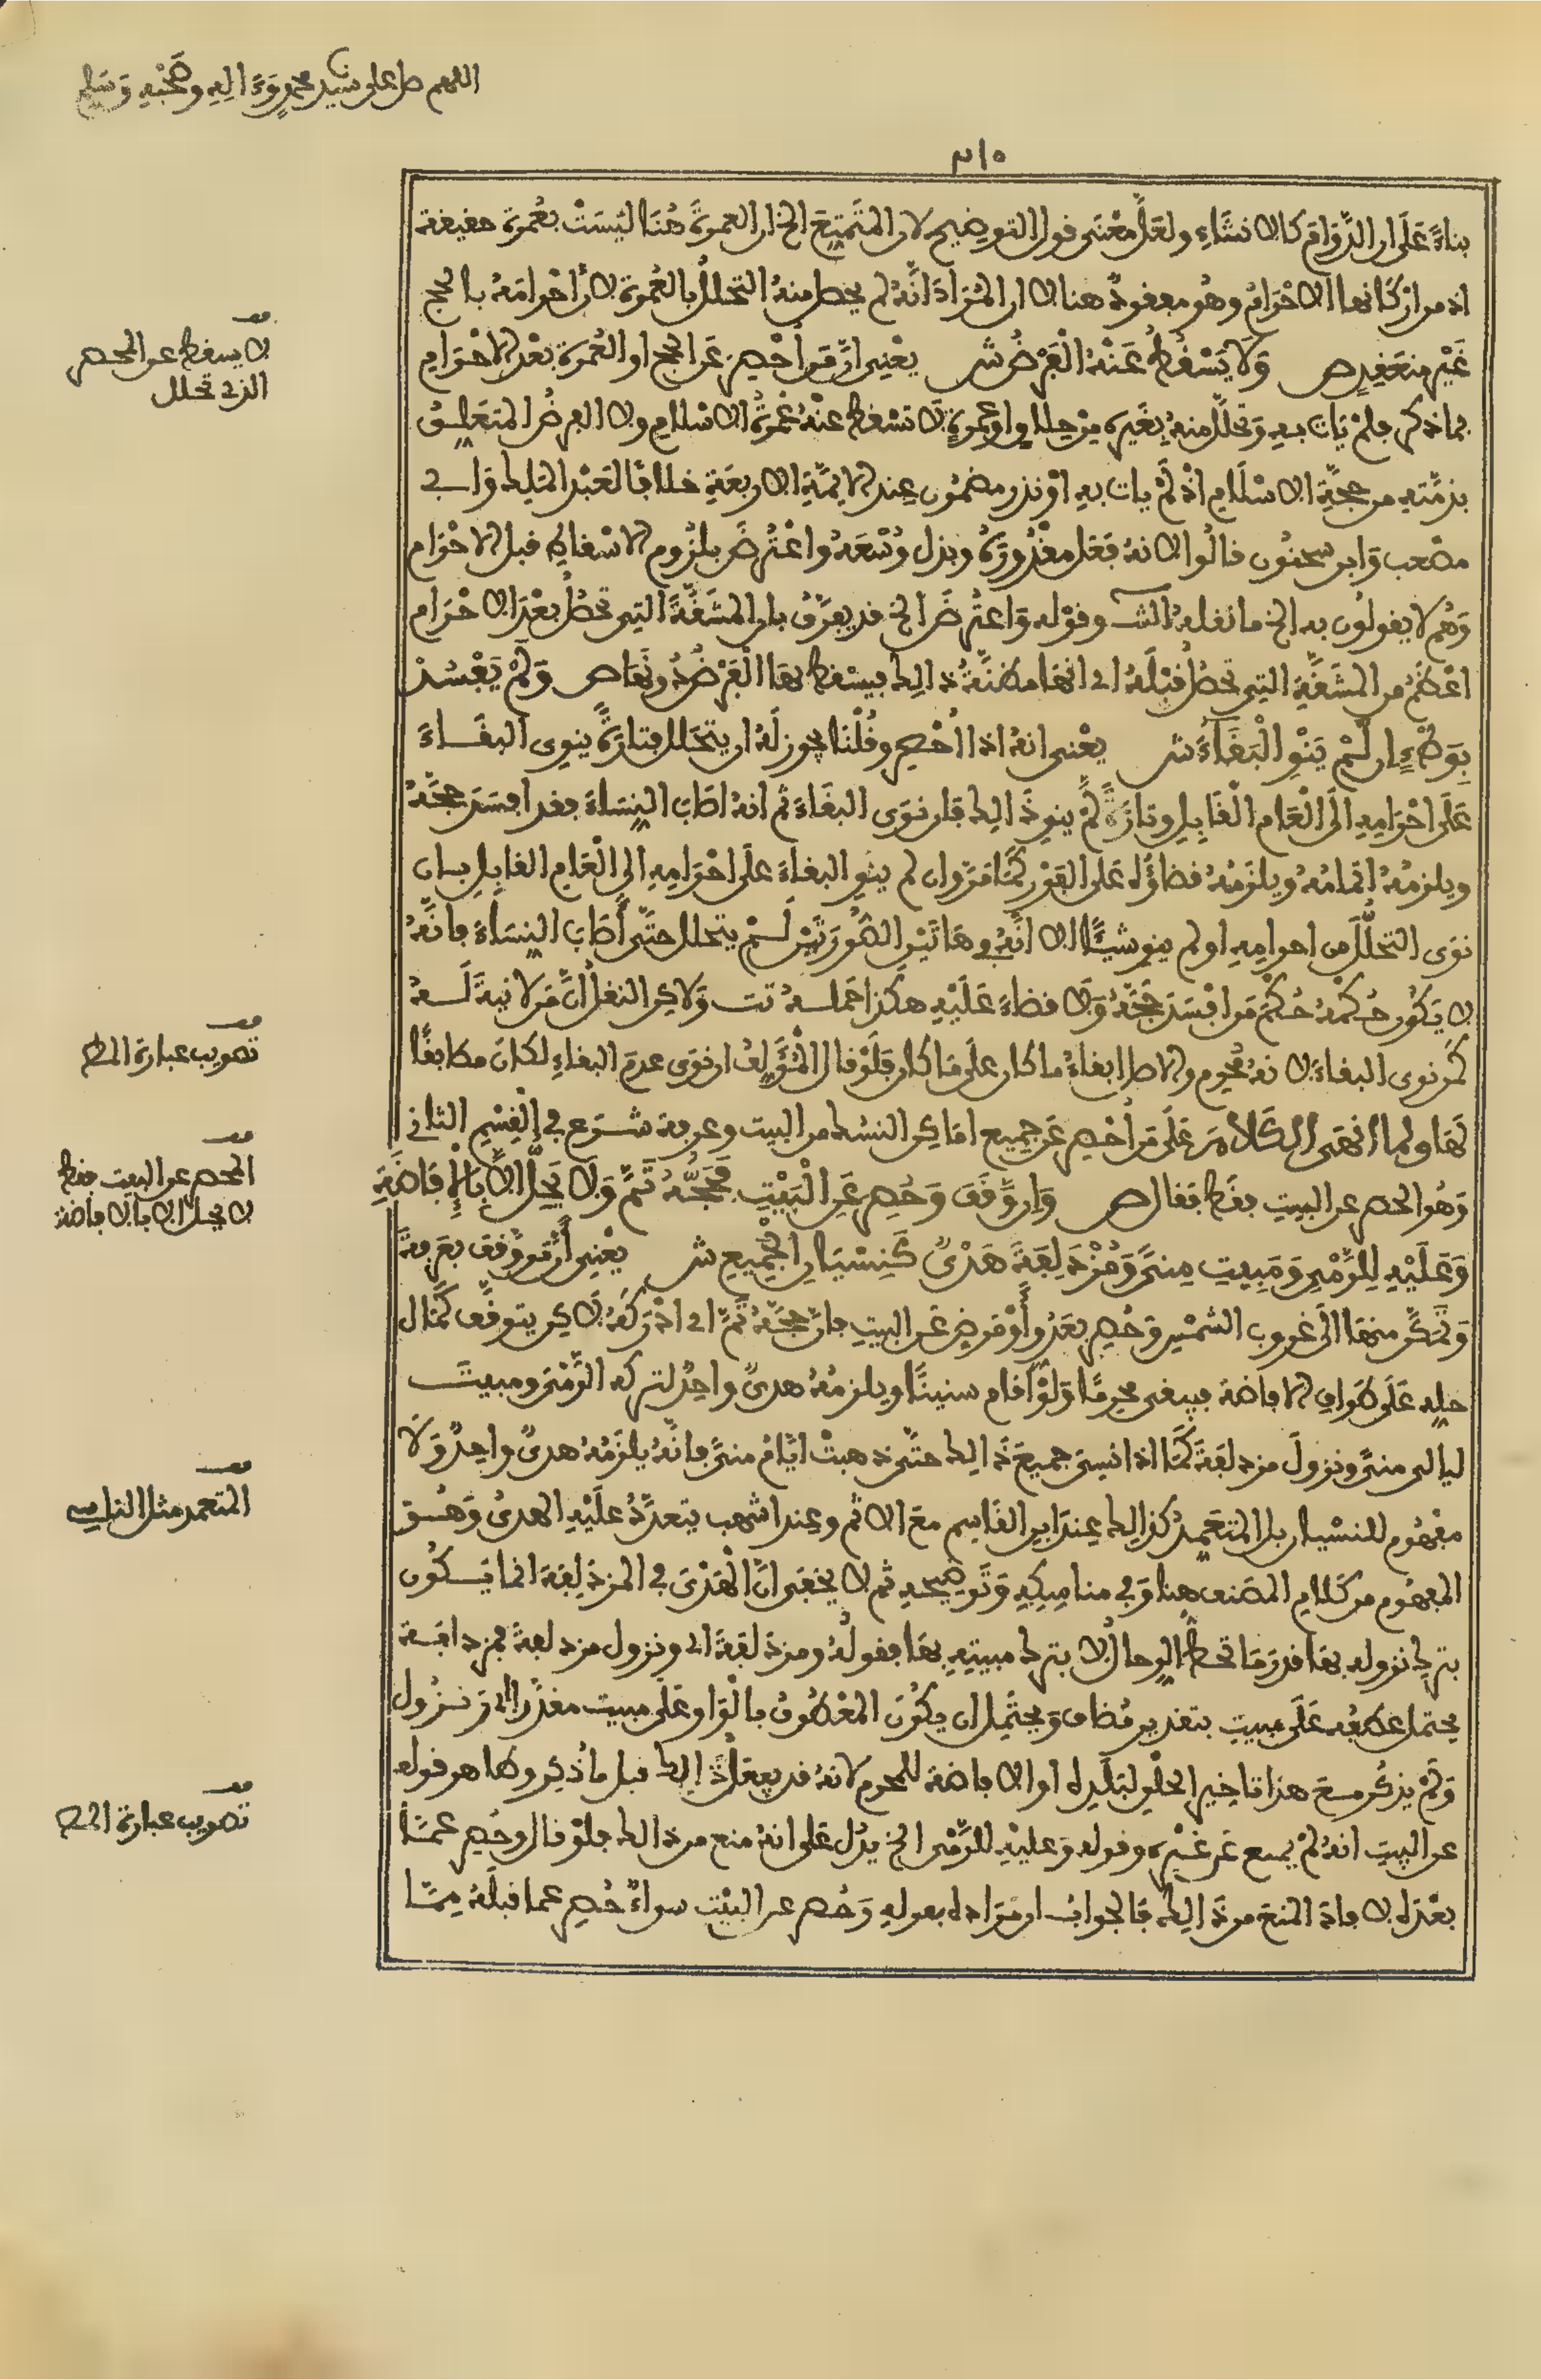 اللهم صل على سيدنا محمد وءاله وصحبه وسلم
٣١٥
بناء على ان الدوام كالانشاء ولعل معنى قول التوضيح لان المتمتع الخ ان العمرة هنا ليست بعمرة حقيقة
اذ من اركانها الاحرام وهو مفقود هنا لان المراد انه لم يحصل منه التحلل بالعمرة لان احرامه بالحج
غير منعقد ص ولا يسقط عنه الفرض ش يعني ان من احصر عن الحج او العمرة بعد الاحرام
بما ذكر فلم يات به وتحلل منه بغيره من حلاق او عمرة لا تسقط عنه عمرة الاسلام ولا الفرض المتعلق
بذمته من حجة الاسلام اذ لم يات به او نذر مضمون عند الايمة الاربعة خلافا لعبد الملك وابي
مصعب وابن سحنون قالوا لانه فعل مقدوره وبذل وسعه واعترض بلزوم الاسقاط قبل الاحرام
وهم لا يقولون به الخ ما نقله الش وقوله واعترض الخ قد يفرق بان المشقة التي تحصل بعد الاحرام
اعظم من المشقة التي تحصل قبله اي انها مظنة ذالك فيسقط بها الفرض دونها ص ولم يفسد
بوطء ان لم ينو البقاء ش يعني انه اذا احصر وقلنا يجوز له ان يتحلل فتارة ينوي البقاء
على احرامه الى العام القابل وتارة لم ينو ذالك فان نوى البقاء ثم انه اصاب النساء فقد افسد حجه
ويلزمه اتمامه ويلزمه قضاؤه على الفور كما مر وان لم ينو البقاء على احرامه الى العام القابل بان
نوى التحلل من احرامه او لم ينو شيئا الا انه في هاتين الصورتين لم يتحلل حتى أصاب النساء فانه
لا يكون حكمه حكم من افسد حجه ولا قضاء عليه هكذا حمله تت ولاكن النقل ان من لا نية له
كمن نوى البقاء لانه محرم والاصل ابقاء ما كان على ما كان فلو قال المؤلف ان نوى عدم البقاء لكان مطابقا
لها ولما انهى الكلام على من أحصر عن جميع اماكن النسك من البيت وعرفة شرع في القسم الثاني
وهو الحصر عن البيت فقط فقال ص وان وقف وحصر عن البيت فحجه تم ولا يحل الا بالإفاضة
وعليه للرمي ومبيت منى ومزدلفة هدي كنسيان الجميع ش يعني أن من وقف بعرفة
وتمكن منها الى غروب الشمس وحصر بعدو أو مرض عن البيت فان حجه تم اي ادركه لاكن يتوقف كمال
حله على طواف الافاضة فيبقى محرما ولو أقام سنينا ويلزمه هدي واحد لتركه الرمي ومبيت
ليالي منى ونزول مزدلفة كما اذا نسي جميع ذالك حتى ذهبت ايام منى فانه يلزمه هدي واحد ولا
مفهوم للنسيان بل المتعمد كذالك عند ابن القاسم مع الاثم وعند اشهب يتعدد عليه الهدي وهو
المفهوم من كلام المصنف هنا وفي مناسكه وتوضيحه ثم لا يخفى ان الهدي في المزدلفة انما يكون
بترك نزوله بها قدر ما تحط الرحال لا بترك مبيته بها فقوله ومزدلفة اي ونزول مزدلفة فمزدلفة
يحتمل عطفه على مبيت بتقدير مضاف ويحتمل ان يكون المعطوف بالواو على مبيت مقدرا اي ونزول
ولم يذكر مع هذا تاخير الحلق لبلده او الافاضة للمحرم لانه قد يفعل ذالك قبل ما ذكر وظاهر قوله
عن البيت انه لم يمنع عن غيره وقوله وعليه للرمي الخ يدل على انه منع من ذالك فلو قال وحصر عما
بعده لافاد المنع من ذالك فالجواب ان مراده بقوله وحصر عن البيت سواء حصر عما قبله مما
قف
لا يسقط عن المحصر
الذي تحلل
قف
تصويب عبارة المص
قف
الحصر عن البيت فقط
لا يحل الا بالافاضة
قف
المتعمد مثل الناسي
قف
تصويب عبارة المص